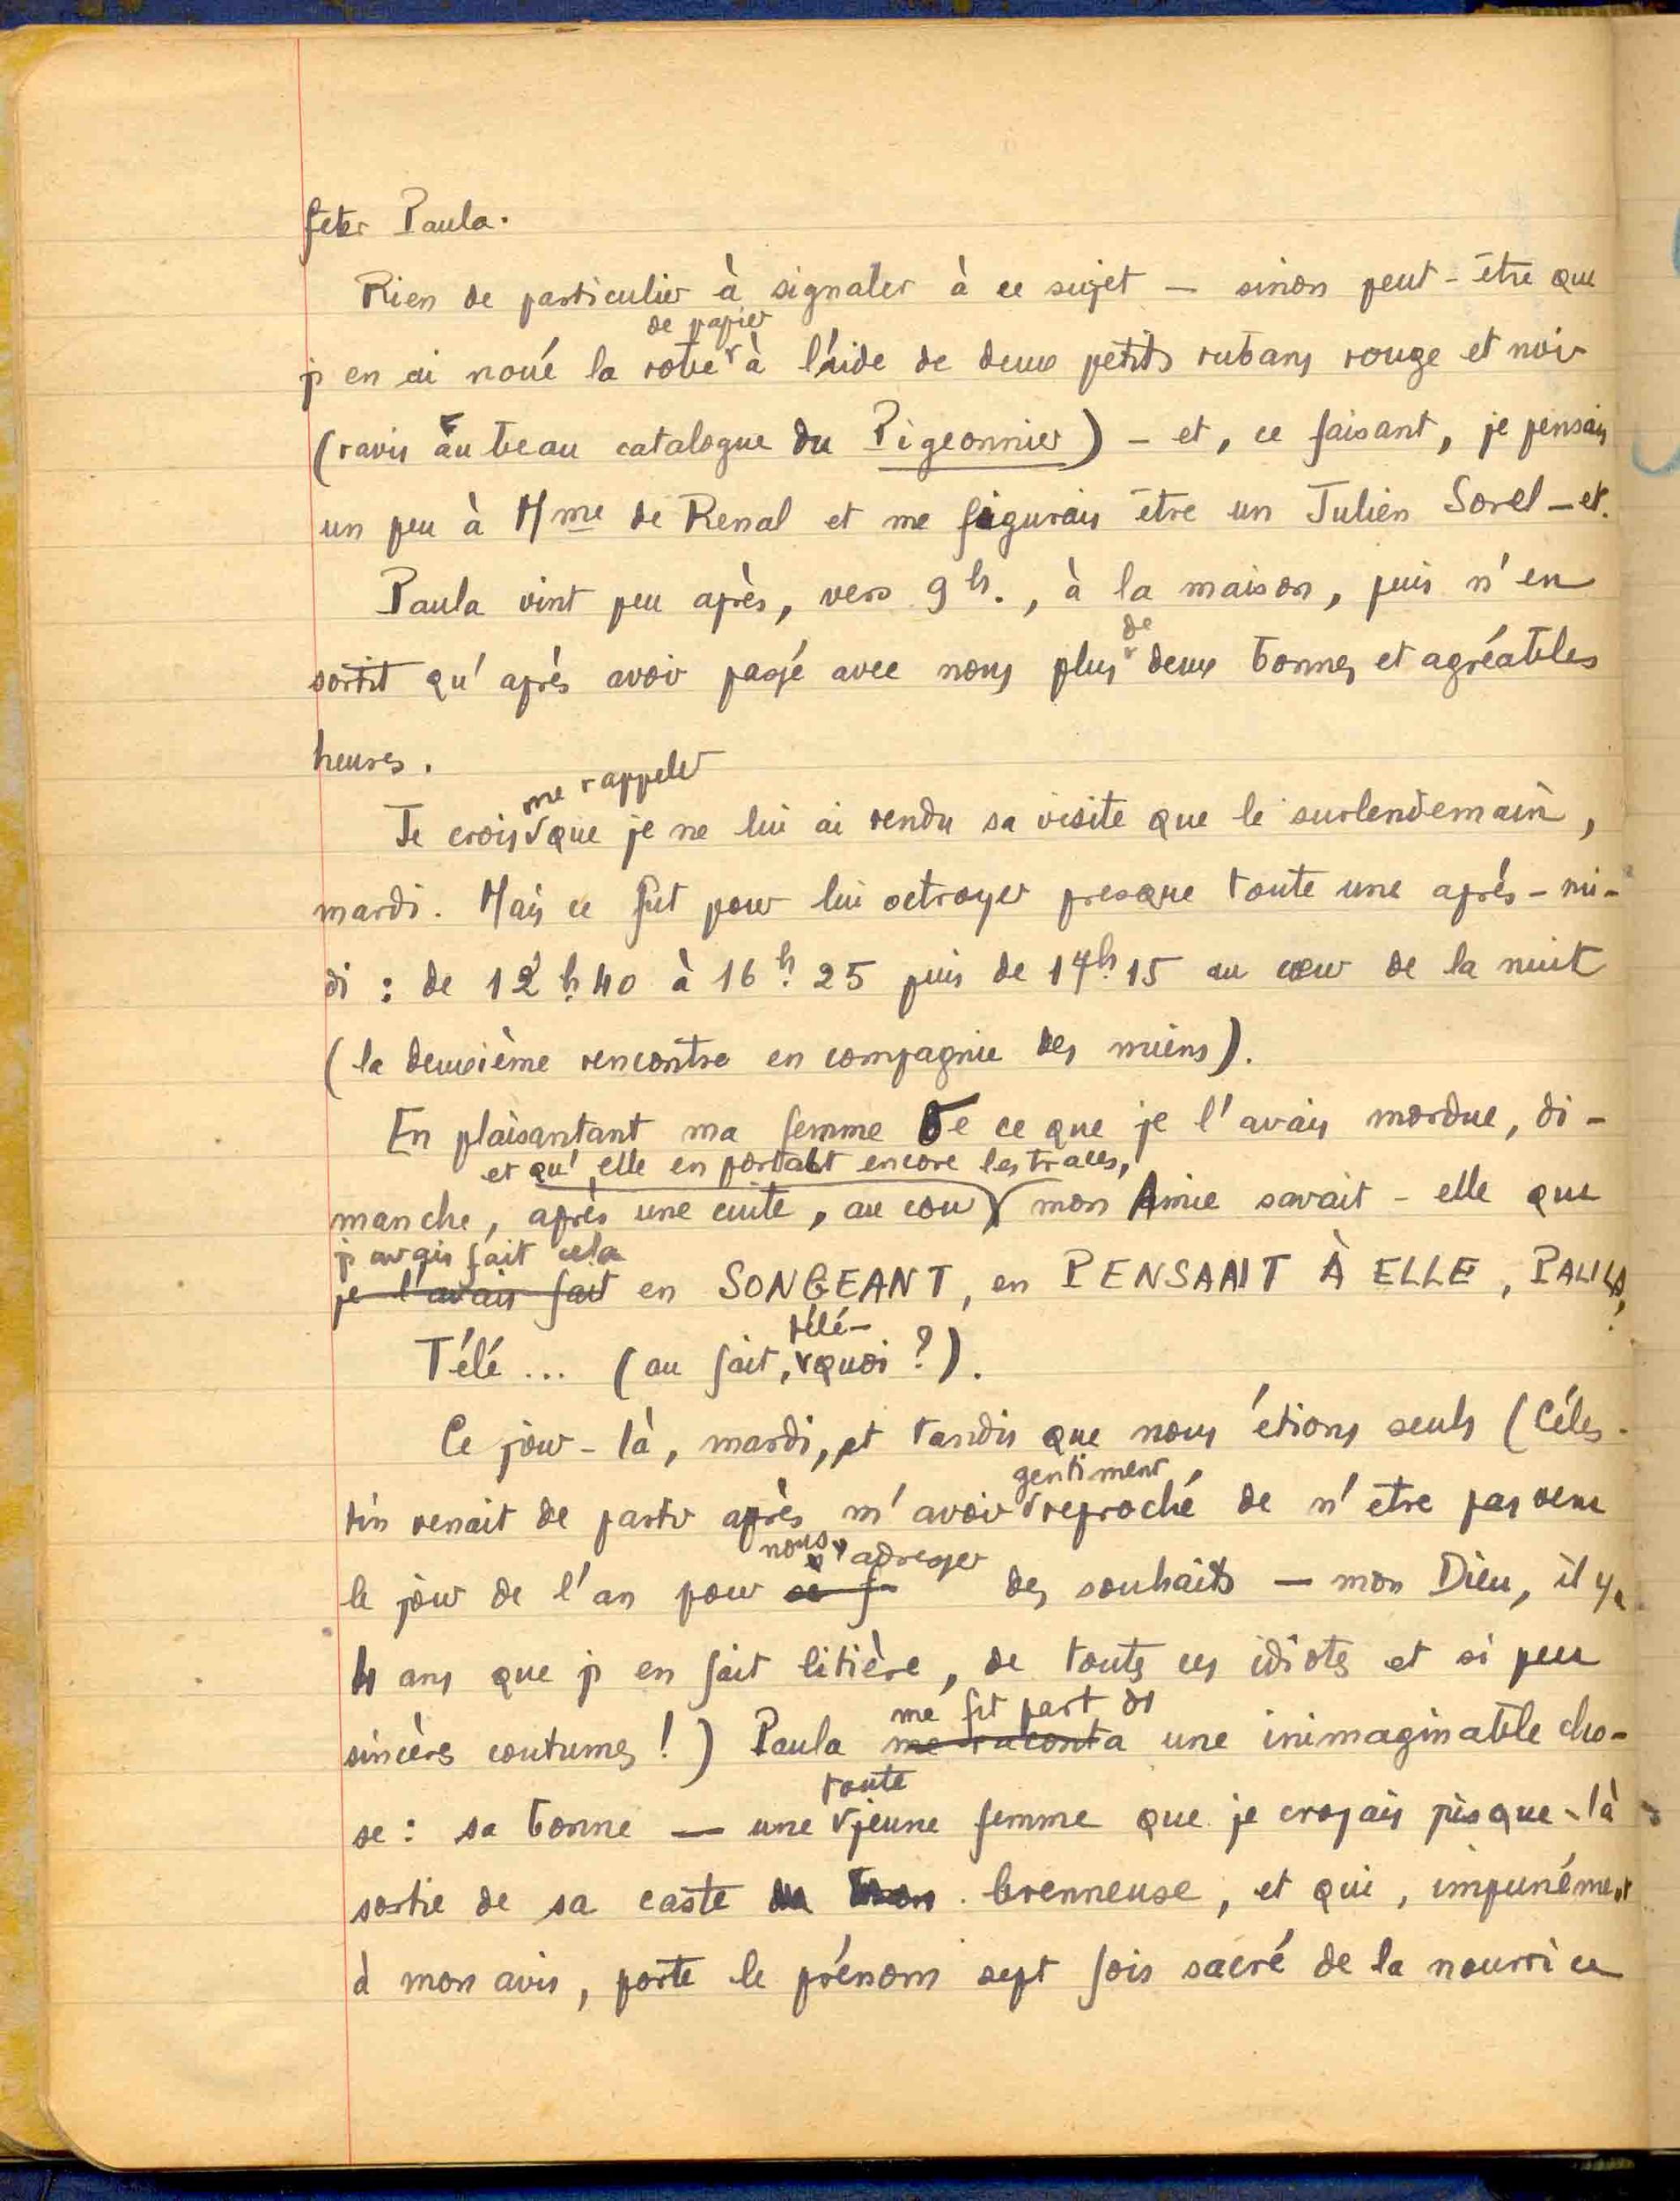 feter Paula.
Rien de particulier à signaler à ce sujet — sinon peut-être que
j'en ai noué la robe de papier à l'aide de deux petits rubans rouge et noir
(ravis au beau catalogue du Pigeonnier) — et, ce faisant, je pensais
un peu à Mme de Renal et me figurais être un Julien Sorel — et.
Paula vint peu après, vers 9 h., à la maison, puis n'en
sortit qu'après avoir passé avec nous plus de deux bonnes et agréables
heures.
Je crois me rappeler que je ne lui ai rendu sa visite que le surlendemain,
mardi. Mais ce fut pour lui octroyer presque toute une après-mi-
di : de 12 h. 40 à 16 h. 25 puis de 17 h. 15 au cœur de la nuit
(la deuxième rencontre en compagnie des miens).
En plaisantant ma femme de ce que je l'avais mordue, di-
et qu'elle en portait encore les traces,
manche, après une cuite, au cou mon Amie savait-elle que
j'avais fait cela
je l'avais fait en SONGEANT, en PENSANT À ELLE, PAULA,
Télé... (au fait, télé-quoi ?).
Ce jour-là, mardi, et tandis que nous étions seuls (Céles-
tin venait de partir après m'avoir gentiment reproché de n'être pas venu
le jour de l'an pour nous adresser des souhaits — mon Dieu, il y a
4 ans que j'en fait litière, de touts ces idiots et si peu
me fit part d'
sincères coutumes !) Paula me raconta une inimaginable cho-
se : sa bonne — une toute jeune femme que je croyais jusque-là
sortie de sa caste brenneuse, et qui, impunément
à mon avis, porte le prénom sept fois sacré de la nourrice